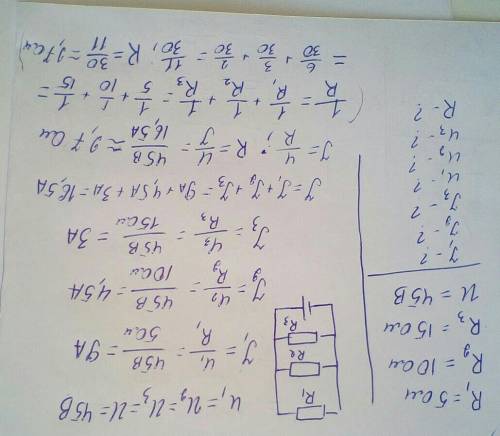 R₁ = 5 Ом
R₂ = 10 Ом
R₃ = 15 Ом
U = 45 В
J₁ - ?
J₂ - ?
J₃ - ?
U₁ - ?
U₂ - ?
U₃ - ?
R - ?
R₁
R₂
R₃
U₁ = U₂ = U₃ = U = 45 В
J₁ = U₁/R₁ = 45 В/5 Ом = 9 А
J₂ = U₂/R₂ = 45 В/10 Ом = 4,5 А
J₃ = U₃/R₃ = 45 В/15 Ом = 3 А
J = J₁ + J₂ + J₃ = 9 А + 4,5 А + 3 А = 16,5 А
J = U/R ; R = U/J = 45 В/16,5 А ≈ 2,7 Ом
( 1/R = 1/R₁ + 1/R₂ + 1/R₃ = 1/5 + 1/10 + 1/15 =
= 6/30 + 3/30 + 2/30 = 11/30 ; R = 30/11 ≈ 2,7 Ом